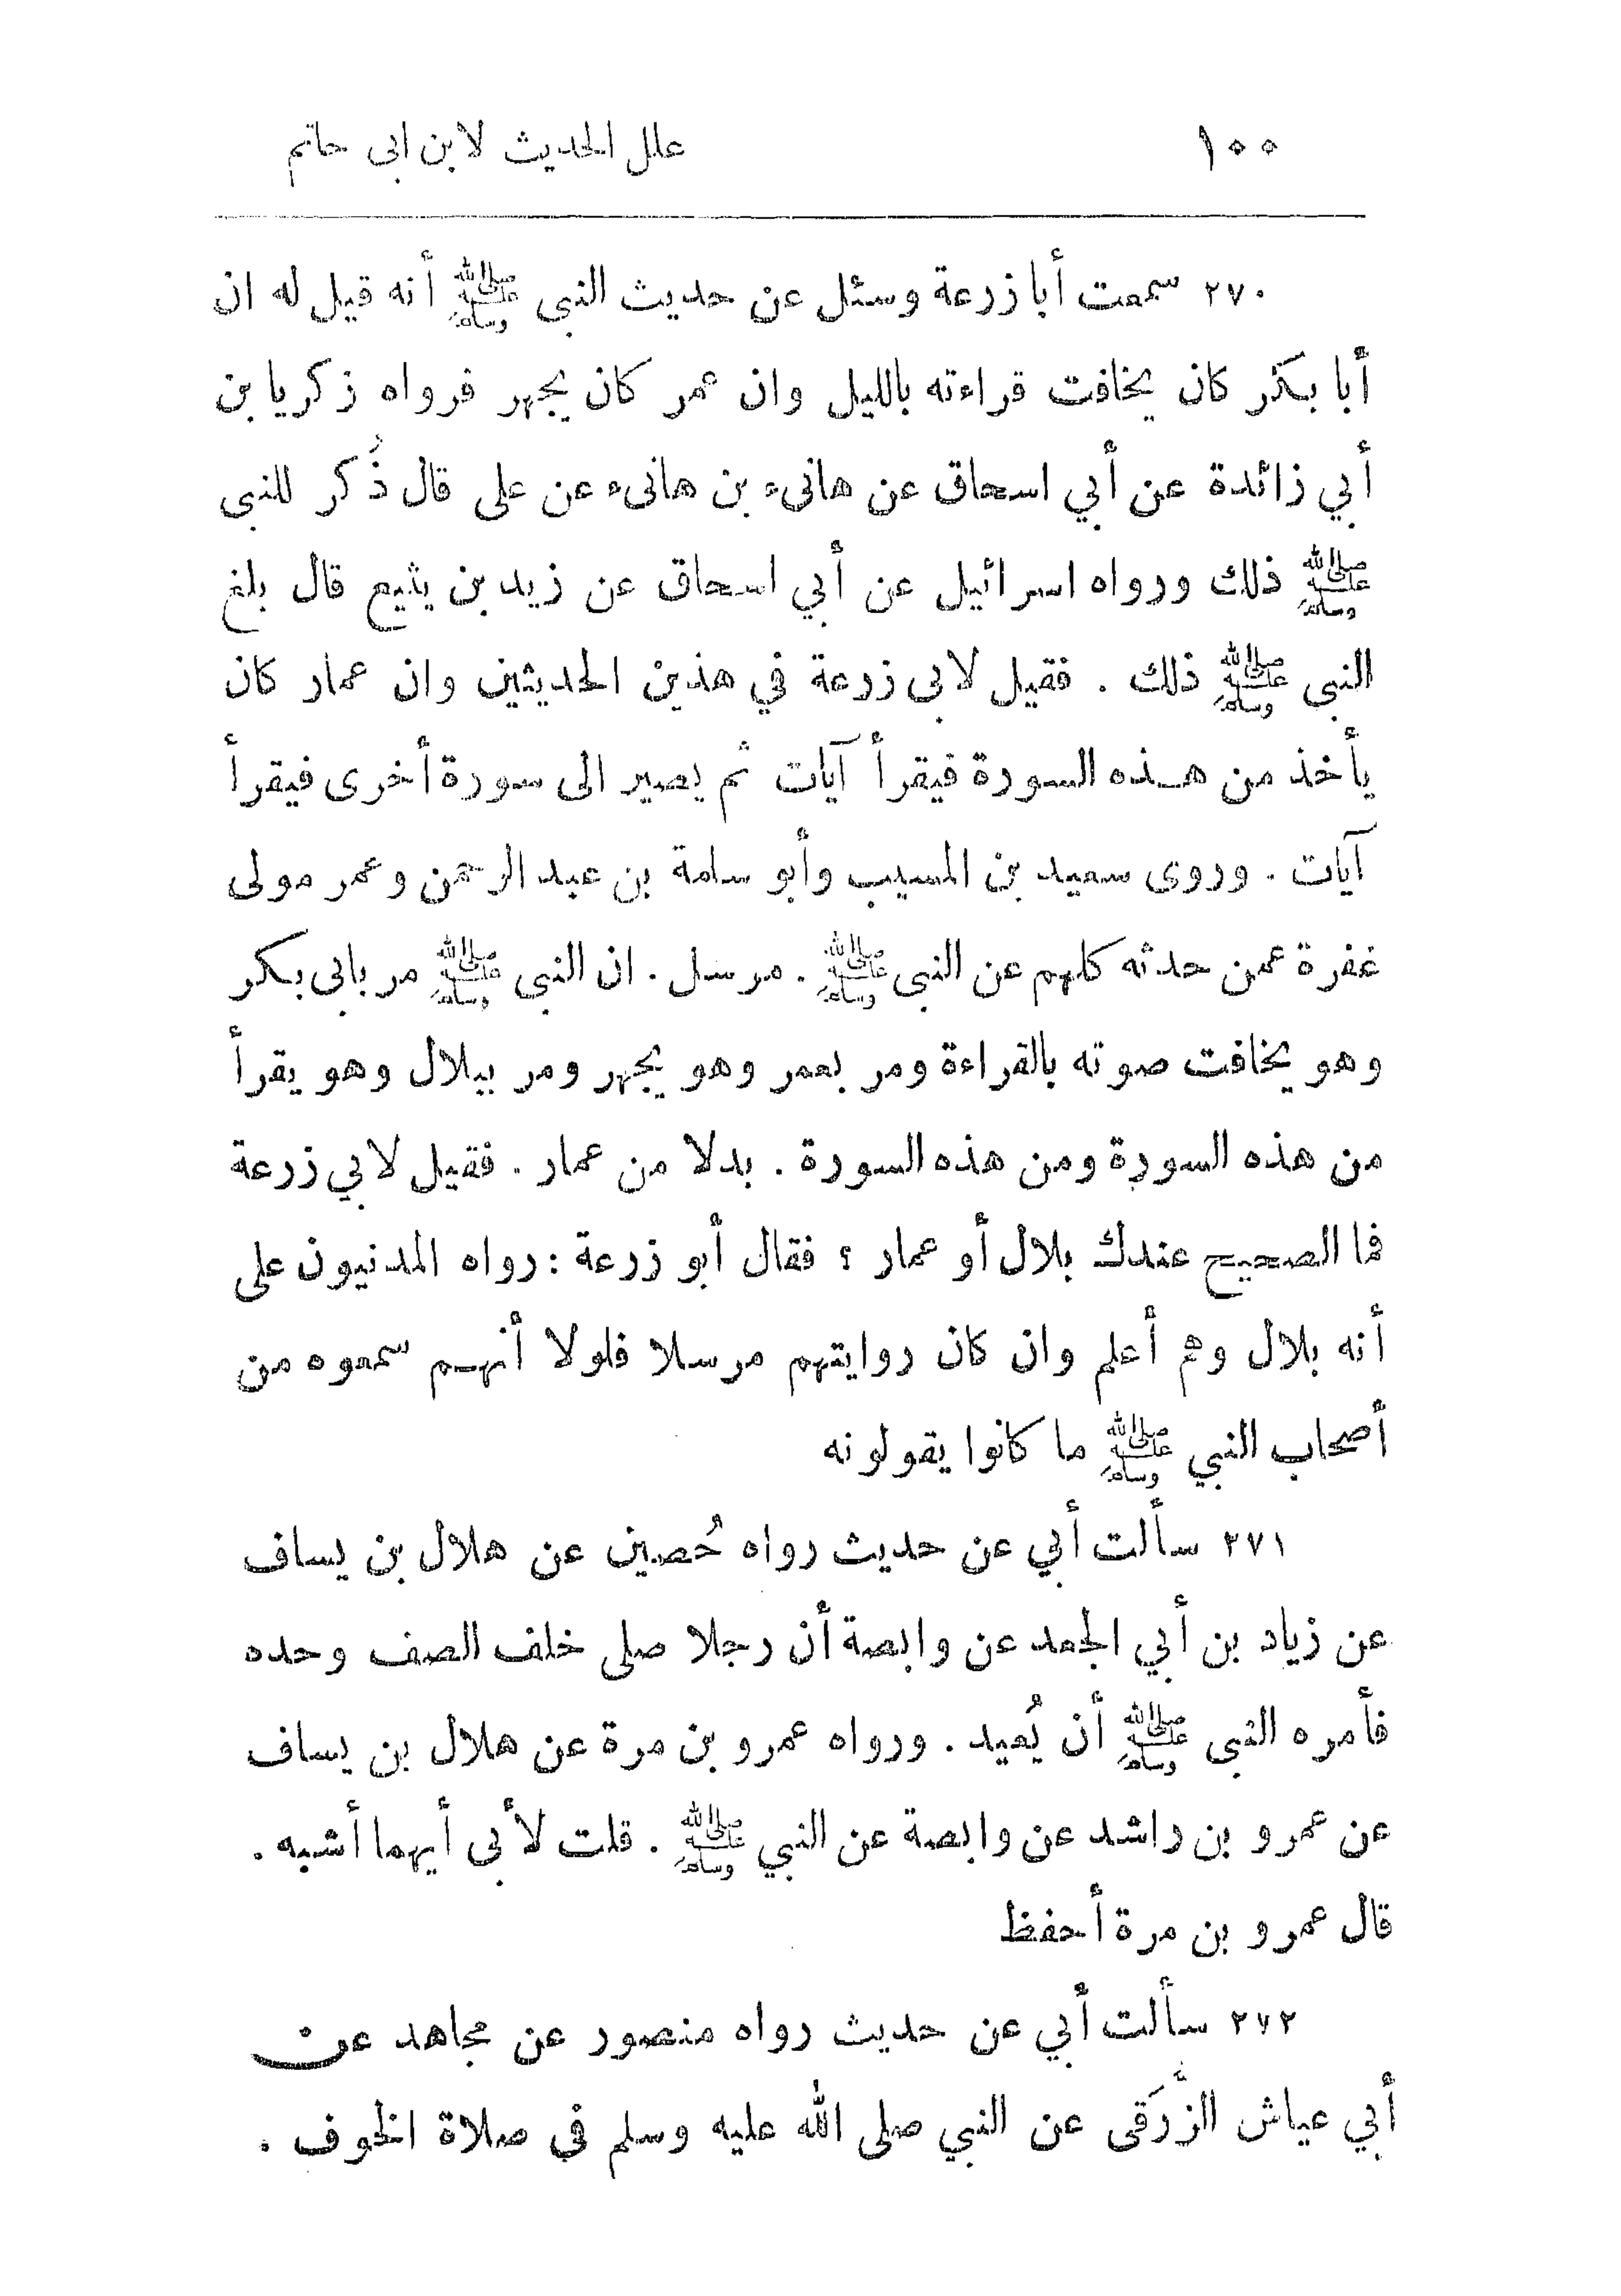 ١٠٠
علل الحديث لابن ابى حاتم
٢٧٠ سمعت أبا زرعة وسئل عن حديث النبى ﷺ أنه قيل له ان
أبا بكر كان يخافت قراءته بالليل وان عمر كان يجهر فرواه زكريا بن
أبي زائدة عن أبي اسحاق عن هانىء بن هانىء عن على قال ذُكر للنبى
ﷺ ذلك ورواه اسرائيل عن أبي اسحاق عن زيد بن يثيع قال بلغ
النبى ﷺ ذلك . فقيل لابى زرعة في هذين الحديثين وان عمار كان
يأخذ من هـذه السورة فيقرأ آيات ثم يصير الى سورة أخرى فيقرأ
آيات . وروى سعيد بن المسيب وأبو سلمة بن عبد الرحمن وعمر مولى
غفرة عمن حدثه كلهم عن النبى ﷺ . مرسل . ان النبي ﷺ مر بابى بكر
وهو يخافت صوته بالقراءة ومر بعمر وهو يجهر ومر ببلال وهو يقرأ
من هذه السورة ومن هذه السورة . بدلا من عمار . فقيل لابي زرعة
فما الصحيح عندك بلال أو عمار ؟ فقال أبو زرعة : رواه المدنيون على
أنه بلال وهم أعلم وان كان روايتهم مرسلا فلولا أنهـم سمعوه من
أصحاب النبي ﷺ ما كانوا يقولونه
٢٧١ سألت أبي عن حديث رواه حُصين عن هلال بن يساف
عن زياد بن أبي الجعد عن وابصة أن رجلا صلى خلف الصف وحده
فأمره النبى ﷺ أن يُعيد . ورواه عمرو بن مرة عن هلال بن يساف
عن عمرو بن راشد عن وابصة عن النبي ﷺ . قلت لأبى أيهما أشبه .
قال عمرو بن مرة أحفظ
٢٧٢ سألت أبي عن حديث رواه منصور عن مجاهد عن
أبي عياش الزُّرَقى عن النبي صلى الله عليه وسلم فى صلاة الخوف .